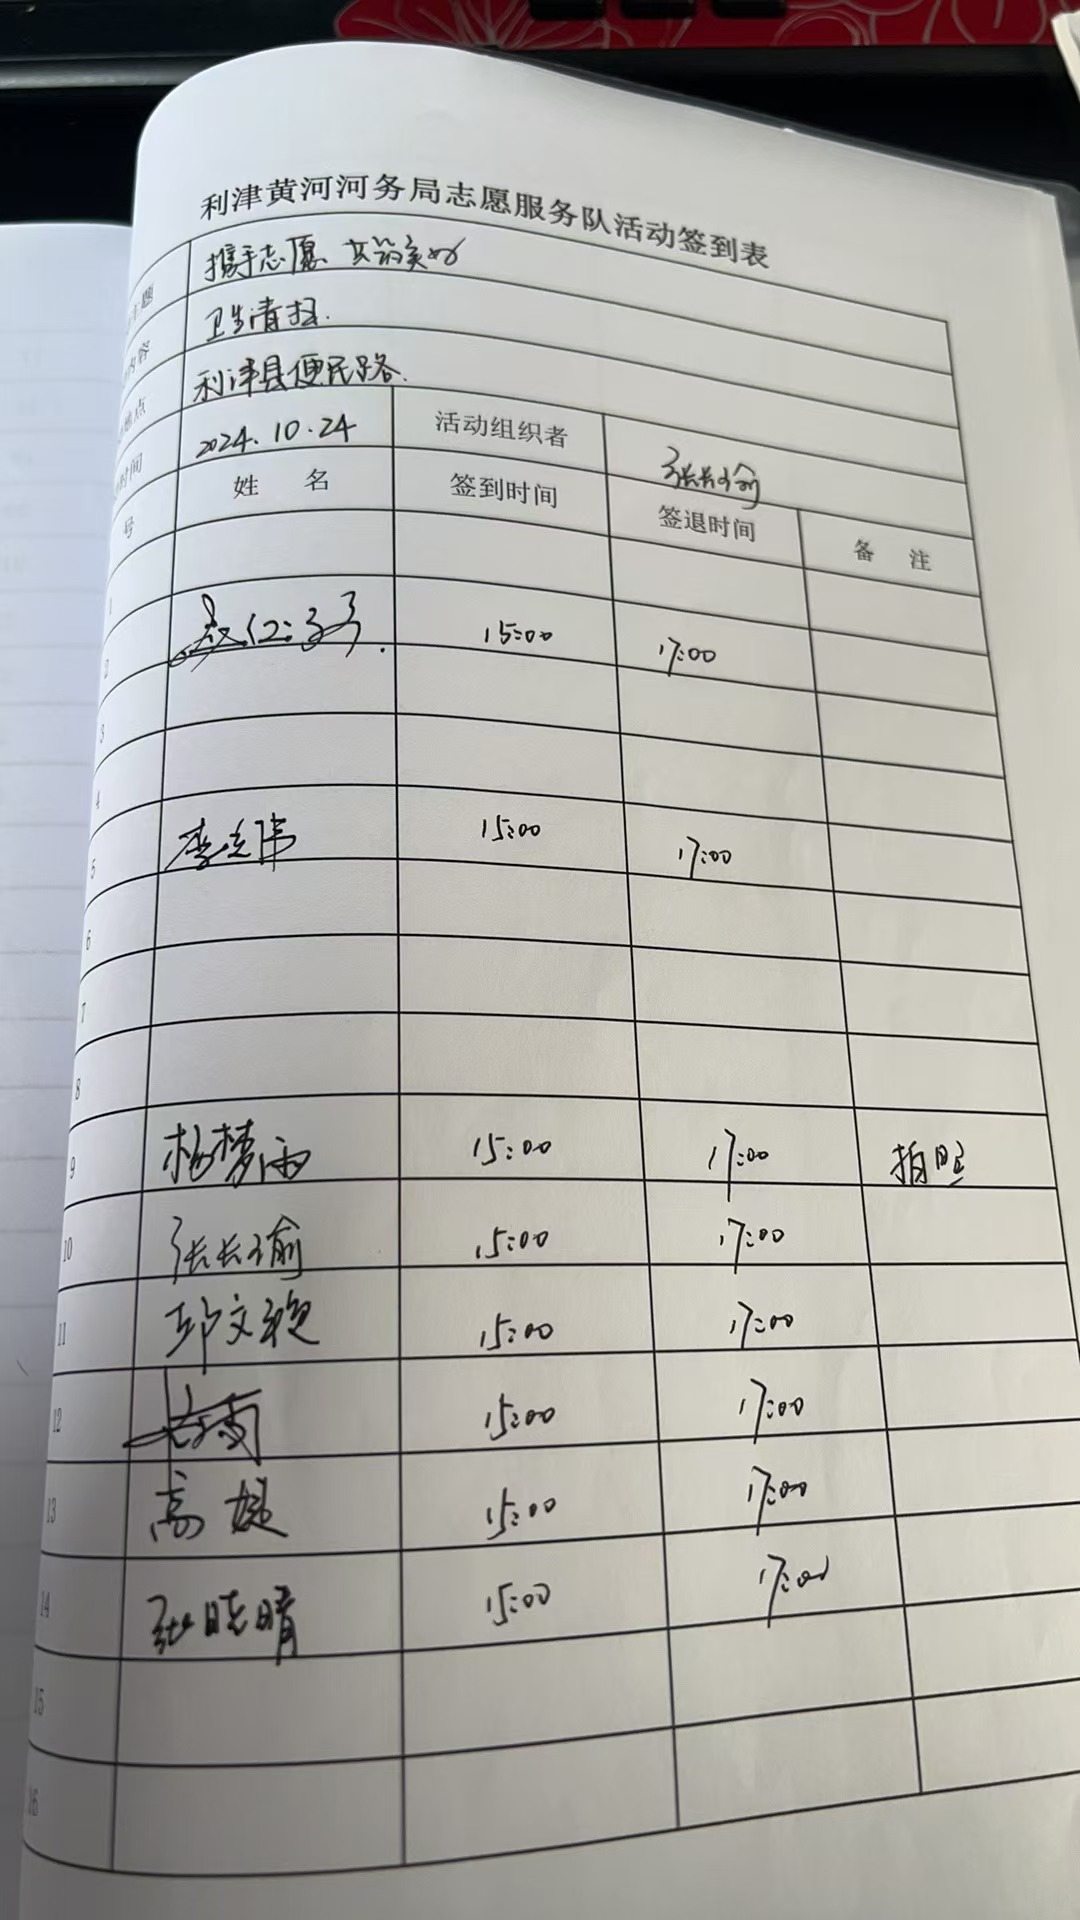 利津黄河河务局志愿服务队活动签到表
主题 携手志愿 共筑美好
内容 卫生清扫.
地点 利津县便民路.
时间 2024.10.24 活动组织者 张长瑜
号 姓 名 签到时间 签退时间 备 注
1
2 15:00 17:00
3
4
5 李 伟 15:00 17:00
6
7
8
9 杨梦雨 15:00 17:00 拍照
10 张长瑜 15:00 17:00
11 文 15:00 17:00
12 15:00 17:00
13 高 媛 15:00 17:00
14 张晓晴 15:00 17:00
15
16